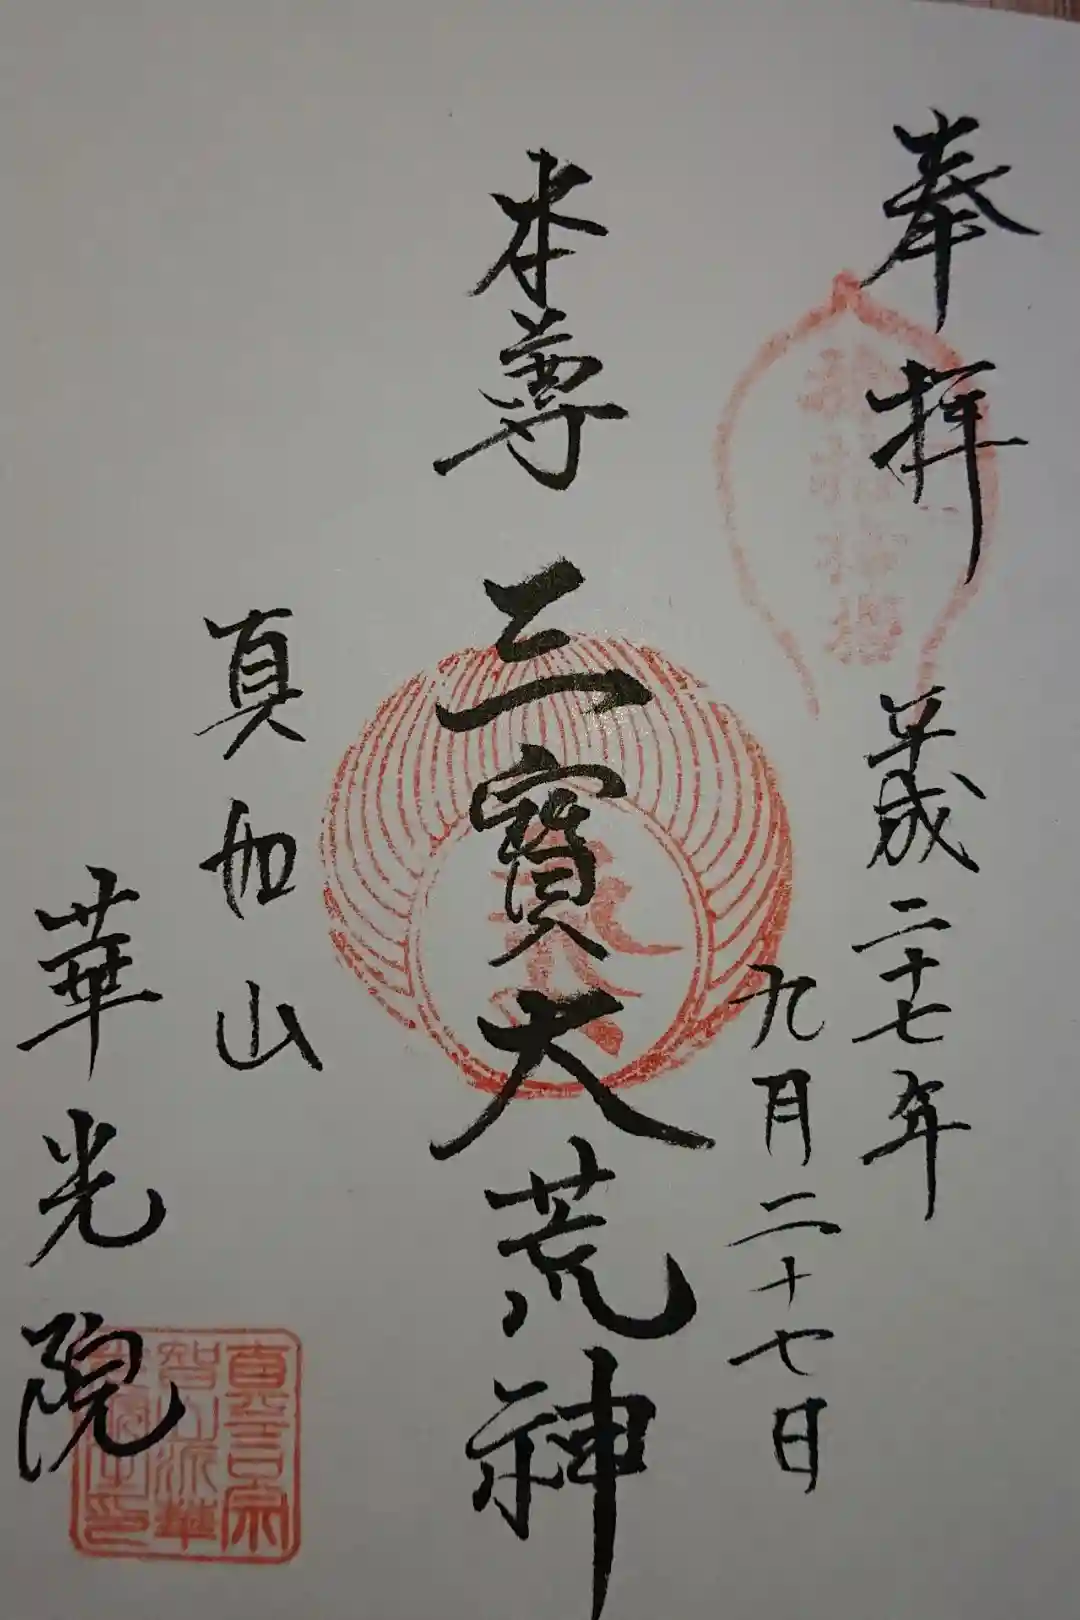 奉拝
平成二十七年
九月二十七日
本尊 三寳大荒神
真如山
華光院
真言宗
智山派華
光院主印